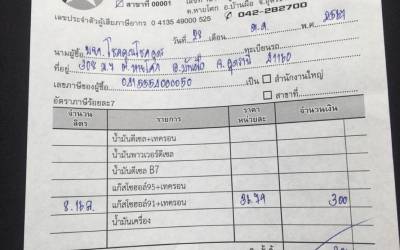 สาขาที่ 00001
ต.หายโศก อ.บ้านผือ จ.อุดรธานี
เลขประจำตัวผู้เสียภาษีอากร 0 4135 49000 525
042-282700
วันที่ 28 ต.ค. 2567
นามผู้ซื้อ
ทะเบียนรถ
ที่อยู่ ต.หายโศก อ.บ้านผือ จ.อุดรธานี 41160
เลขภาษีของผู้ซื้อ 0415554000050 เป็น สำนักงานใหญ่
สาขาที่
อัตราภาษีร้อยละ7
จำนวนลิตร รายการ ราคาหน่วยละ จำนวนเงิน
น้ำมันดีเซล+เทครอน
น้ำมันพาวเวอร์ดีเซล
น้ำมันดีเซล B7
แก๊สโซฮอล์95+เทครอน
แก๊สโซฮอล์91+เทครอน 300
น้ำมันเครื่อง